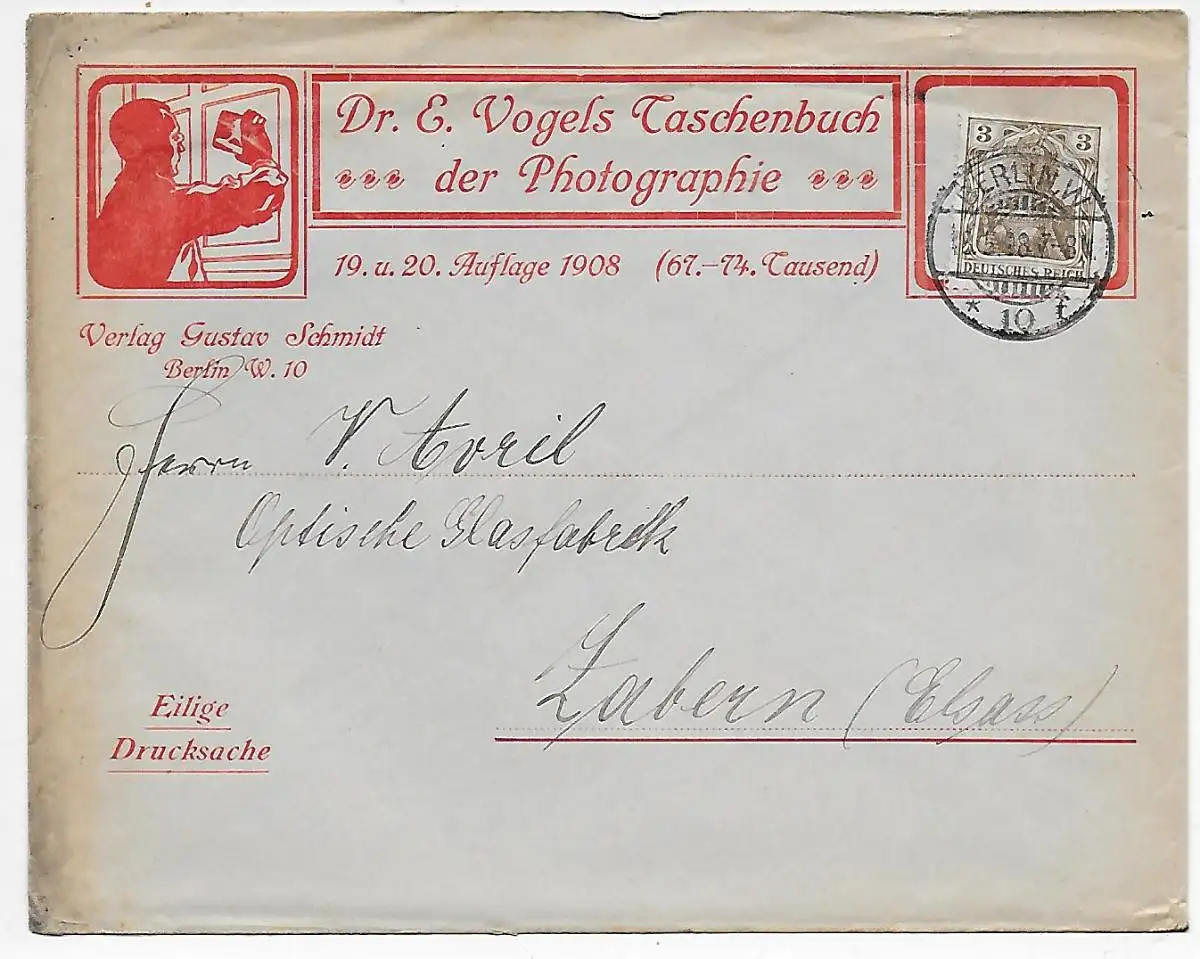 Dr. E. Vogels Taschenbuch
der Photographie
19. u. 20. Auflage 1908 (67.–74. Tausend)
3 3
DEUTSCHES REICH
BERLIN.W.
08.7-8
* 10 f *
Verlag Gustav Schmidt
Berlin W. 10
Herrn V. Avril
Optische Glasfabrik
Zabern (Elsass)
Eilige
Drucksache